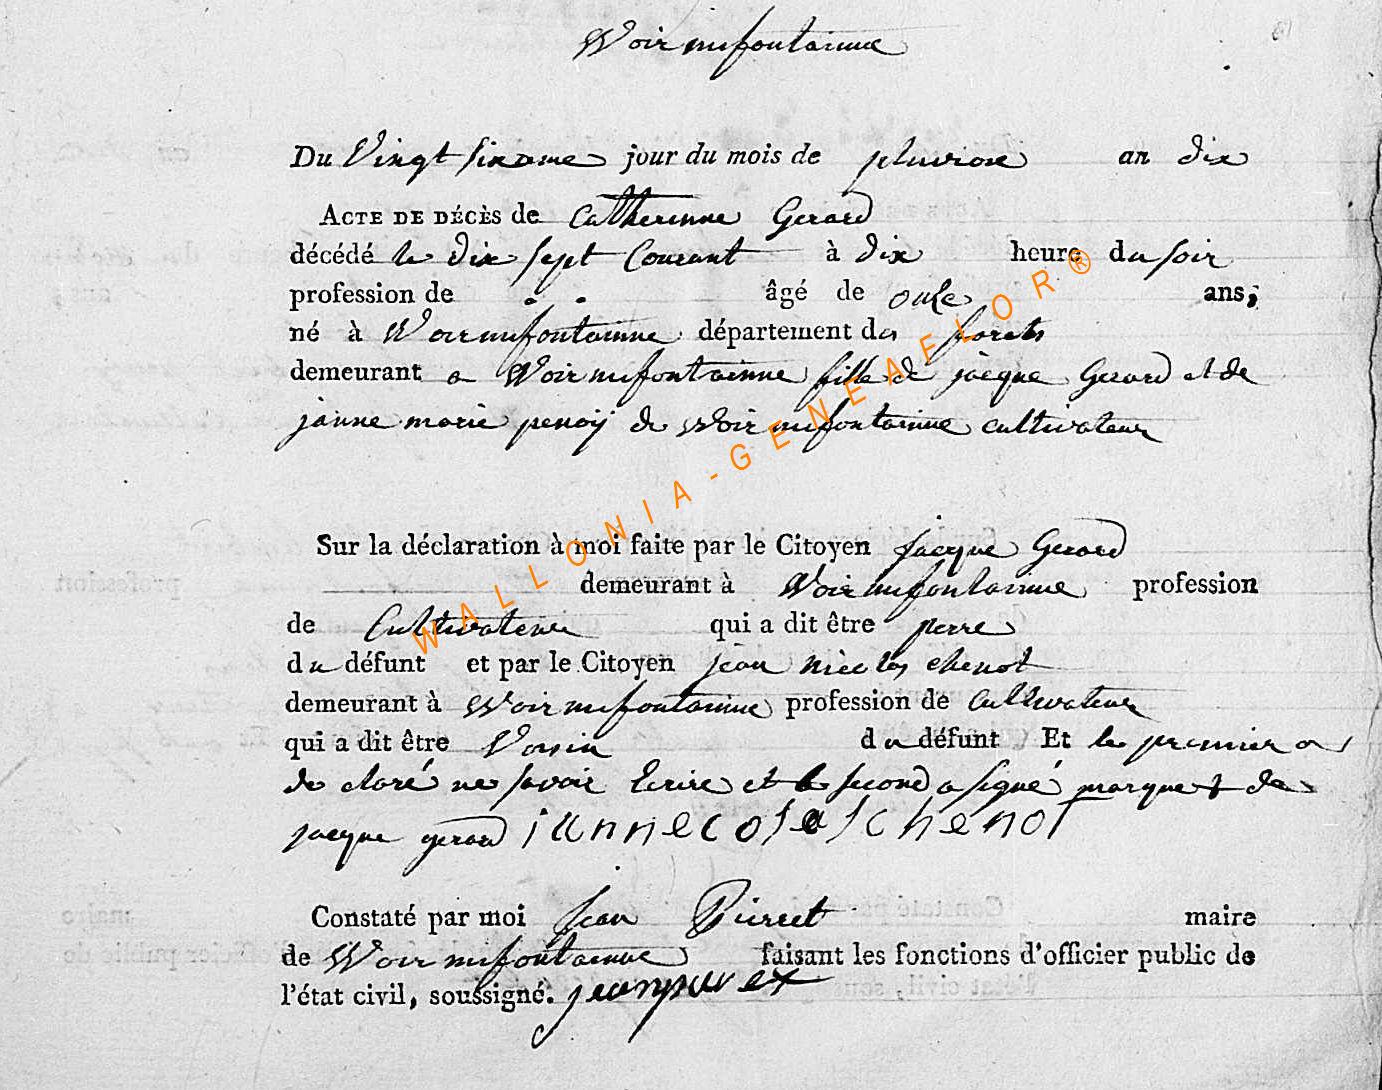 Woirmifontainne
Du Vingt sixieme jour du mois de pluviose an dix
ACTE DE DÉCÈS de Catherinne Gerard
décédé le dix sept Courant à dix heure du soir
profession de . . âgé de onze ans,
né à Woirmifontainne département des forets
demeurant a Woirmifontainne fille de jacque Gerard et de
janne marie penoÿ de Woirmifontainne cultivateur
Sur la déclaration à moi faite par le Citoyen Jacque Gerard
demeurant à Woirmifontainne profession
de Cultivateur qui a dit être perre
du défunt et par le Citoyen jean nicolas chenot
demeurant à Woirmifontainne profession de Cultivateur
qui a dit être Voisin du défunt Et le premier a
de claré ne savoir Ecrire et le second a signé marque + de
jacque gerard jannecolaschenot
Constaté par moi Jean Pierret maire
de Woirmifontainne faisant les fonctions d'officier public de
l'état civil, soussigné. jeanpierret
WALLONIA-GENEAFLOR®